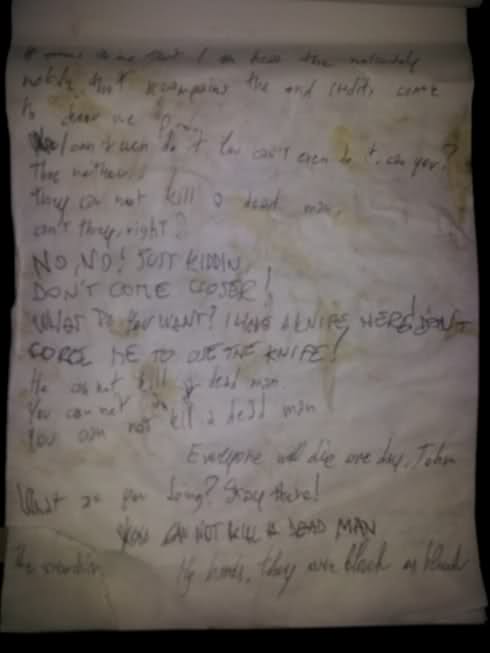 it seems to me that I can hear the melancholy
melody that accompanies the end credits come
to
I can't even do it. You can't even do it, can you?
They
they can not kill a dead man,
can't they, right?
NO, NO! JUST KIDDIN
DON'T COME CLOSER!
WHAT DO YOU WANT? I HAVE A KNIFE HERE! DON'T
FORCE ME TO USE THE KNIFE!
He can not kill a dead man.
You can not kill a dead man
You can not
Everyone will die one day, John
What are you doing? Stay there!
YOU CAN NOT KILL A DEAD MAN
The
My hands, they were black as black